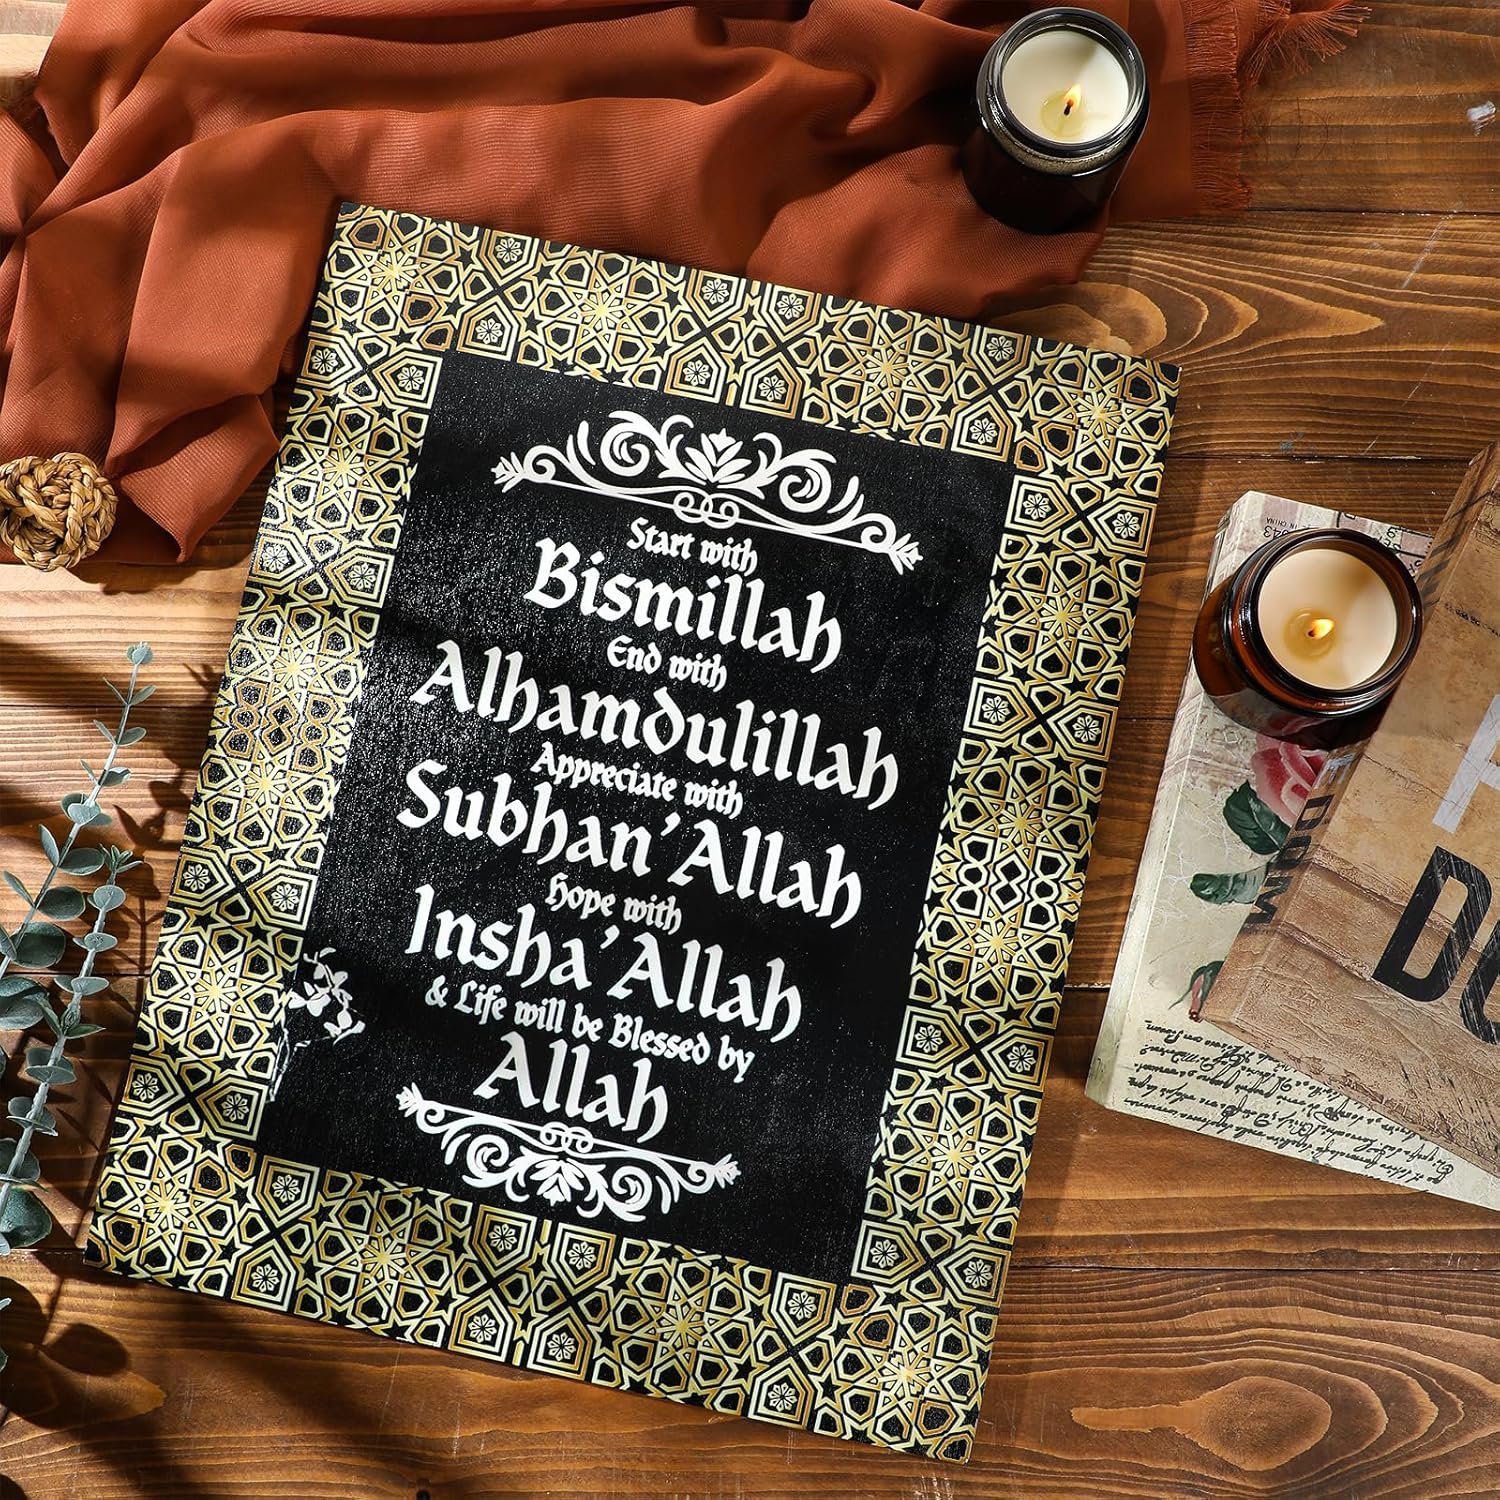 Start with
Bismillah
End with
Alhamdulillah
Appreciate with
Subhan'Allah
Hope with
Insha'Allah
& Life will be Blessed by
Allah
IN CHINA